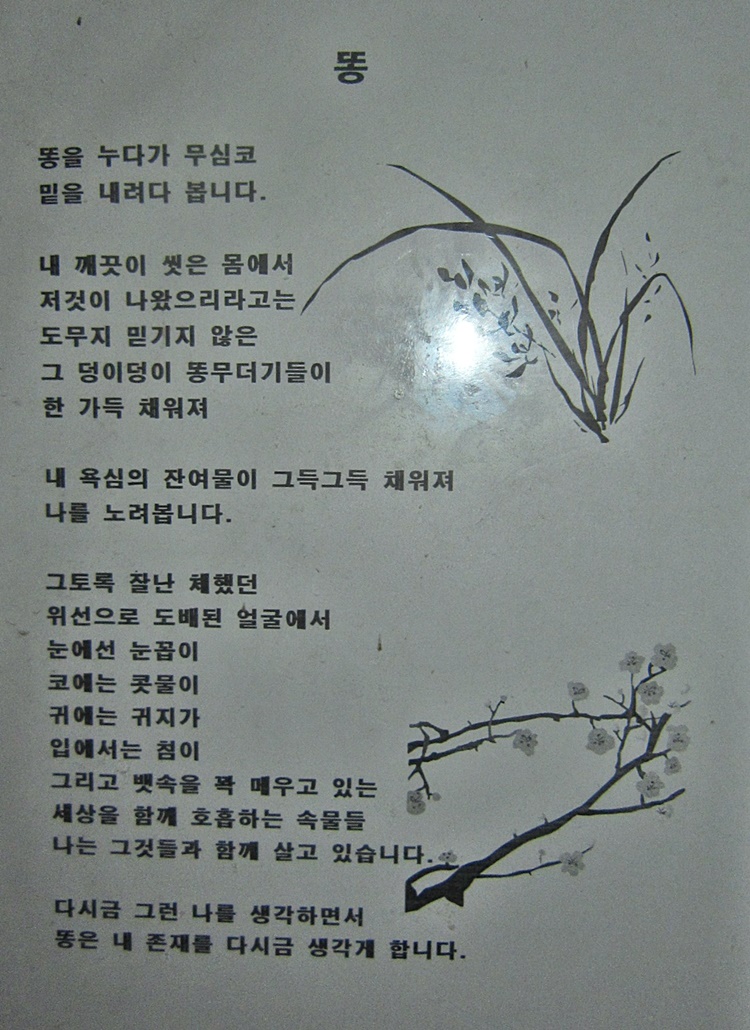 똥
똥을 누다가 무심코
밑을 내려다 봅니다.
내 깨끗이 씻은 몸에서
저것이 나왔으리라고는
도무지 믿기지 않은
그 덩이덩이 똥무더기들이
한 가득 채워져
내 욕심의 잔여물이 그득그득 채워져
나를 노려봅니다.
그토록 잘난 체했던
위선으로 도배된 얼굴에서
눈에선 눈꼽이
코에는 콧물이
귀에는 귀지가
입에서는 침이
그리고 뱃속을 꽉 메우고 있는
세상을 함께 호흡하는 속물들
나는 그것들과 함께 살고 있습니다.
다시금 그런 나를 생각하면서
똥은 내 존재를 다시금 생각게 합니다.